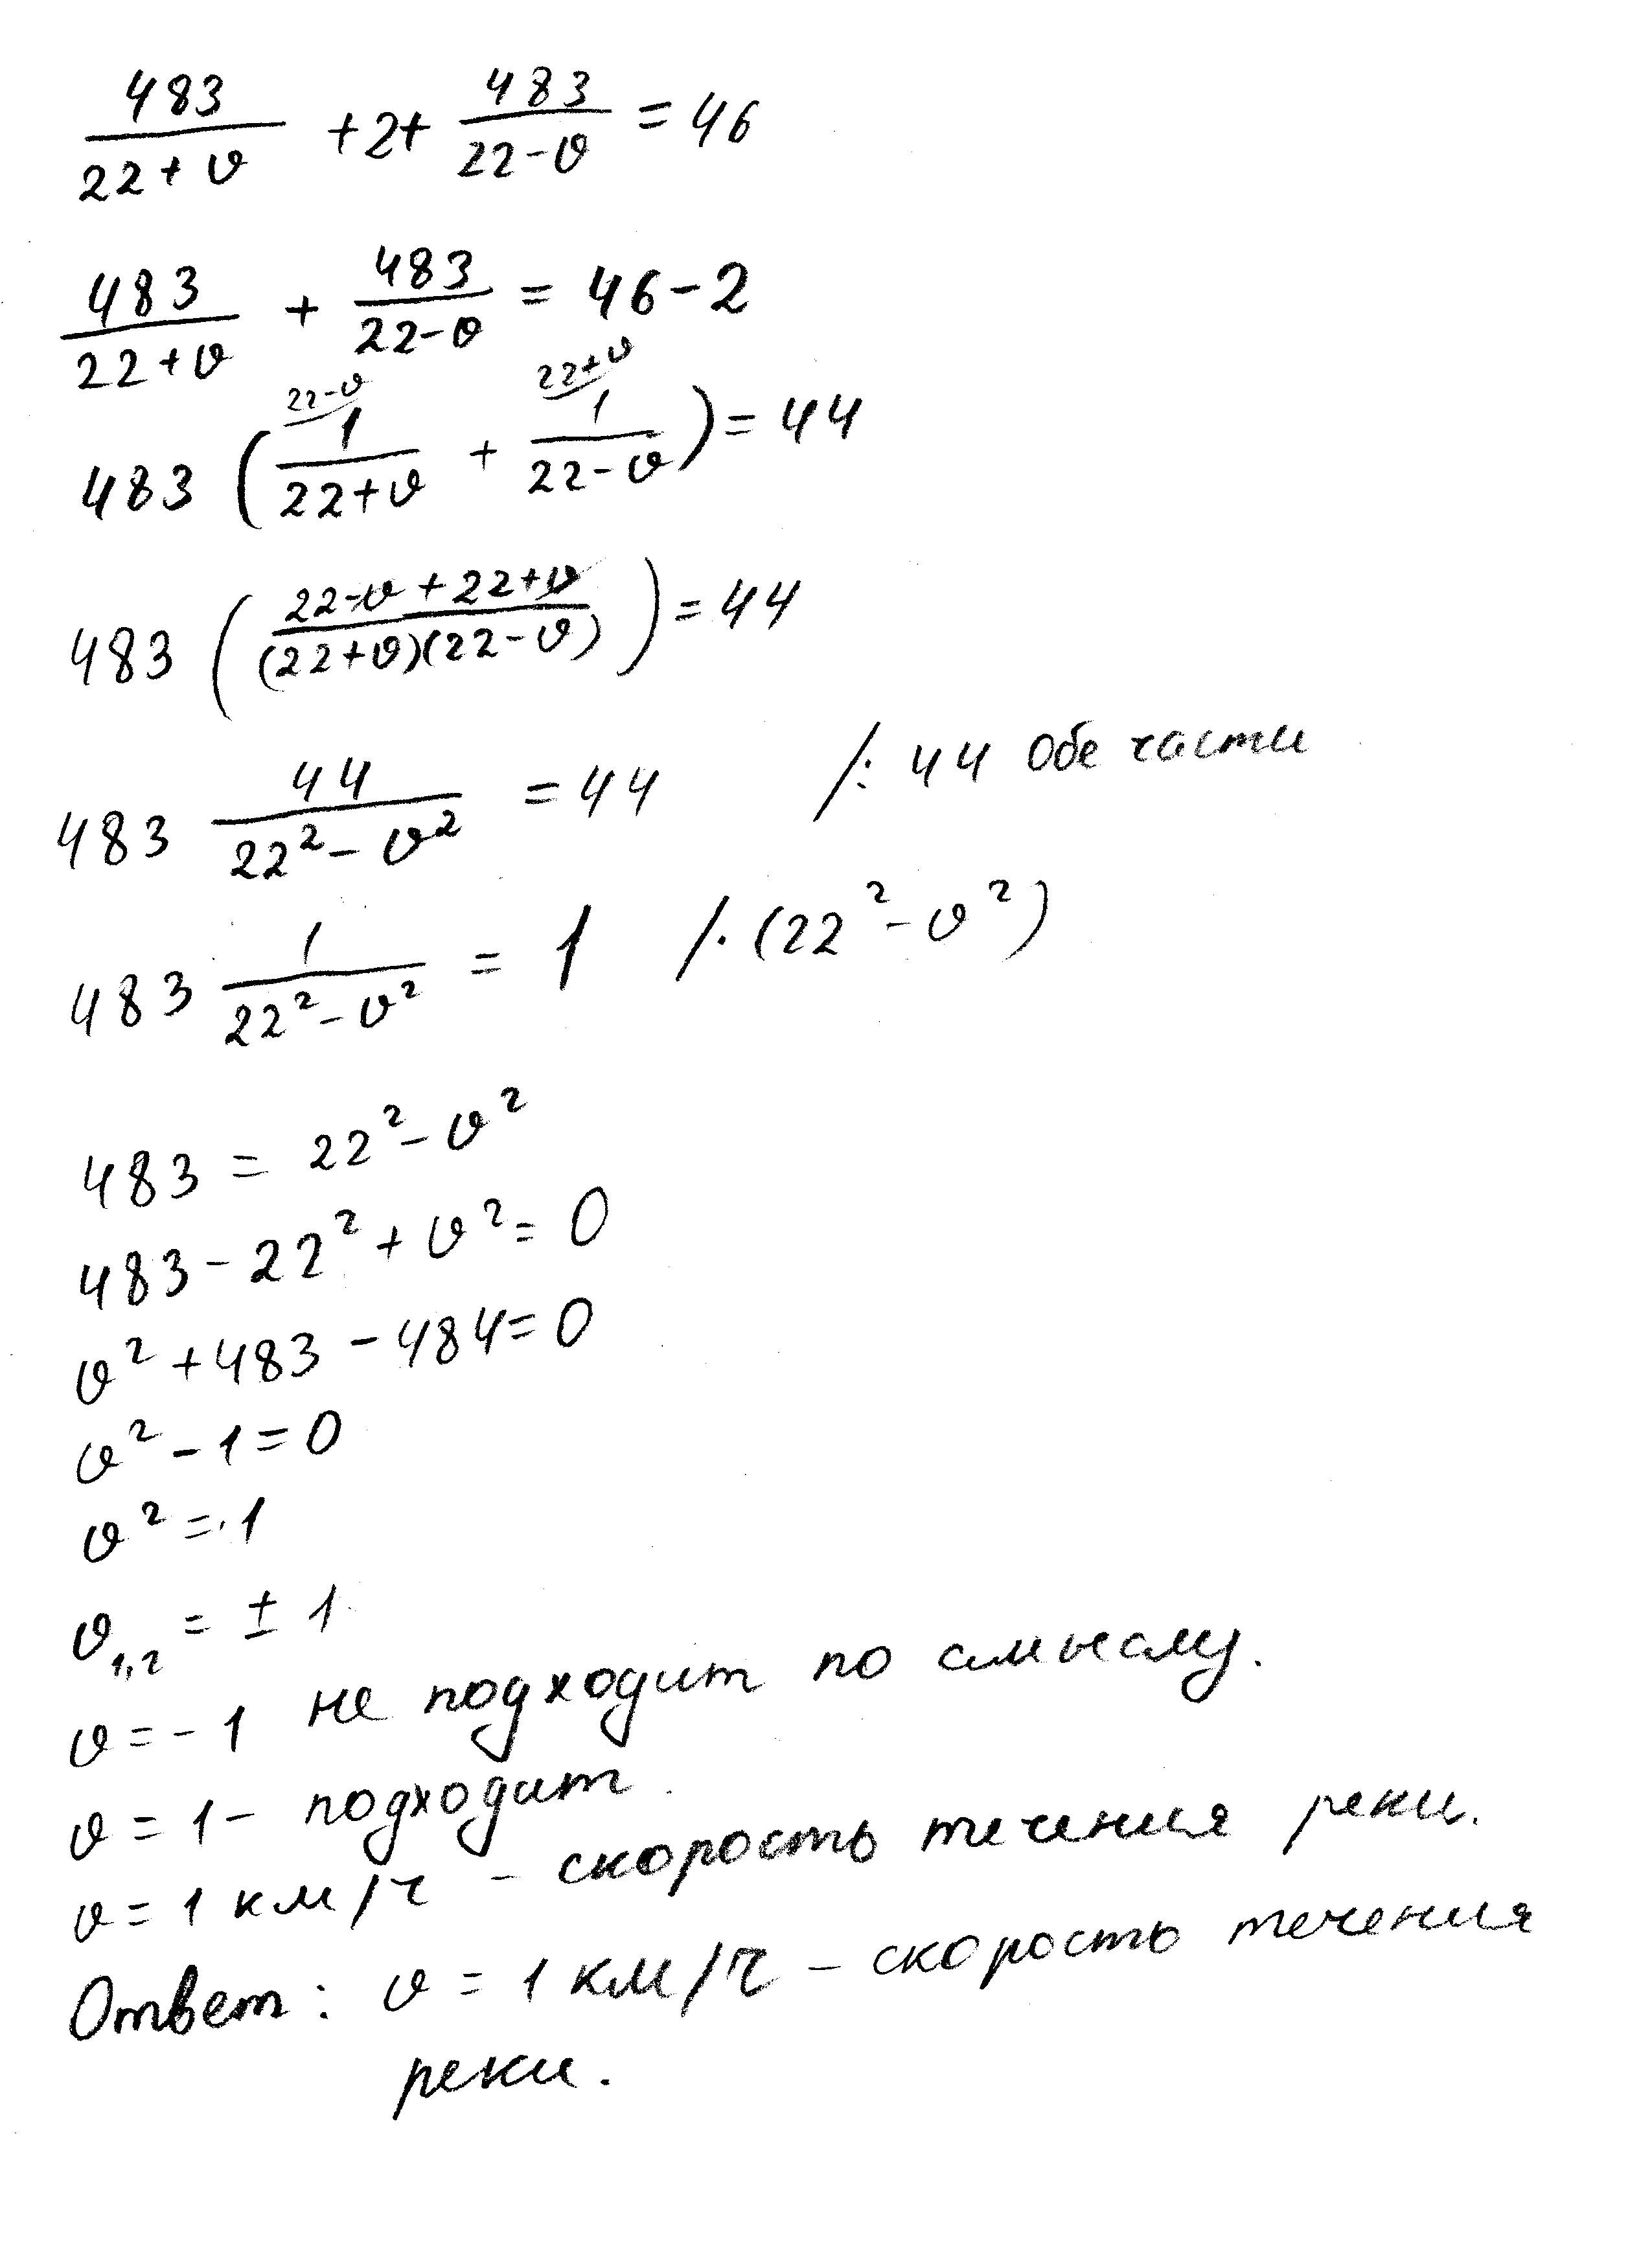 483/(22+v) + 2 + 483/(22-v) = 46
483/(22+v) + 483/(22-v) = 46-2
22-v 22+v
483 (1/(22+v) + 1/(22-v)) = 44
483 ((22-v+22+v)/((22+v)(22-v))) = 44
483 44/(22²-v²) = 44 /: 44 Обе части
483 1/(22²-v²) = 1 /· (22²-v²)
483 = 22²-v²
483-22²+v²=0
v²+483-484=0
v²-1=0
v²=1
v₁,₂ = ± 1
v=-1 не подходит по смыслу.
v=1- подходит.
v=1 км/ч - скорость течения реки.
Ответ: v = 1 км/ч - скорость течения
реки.